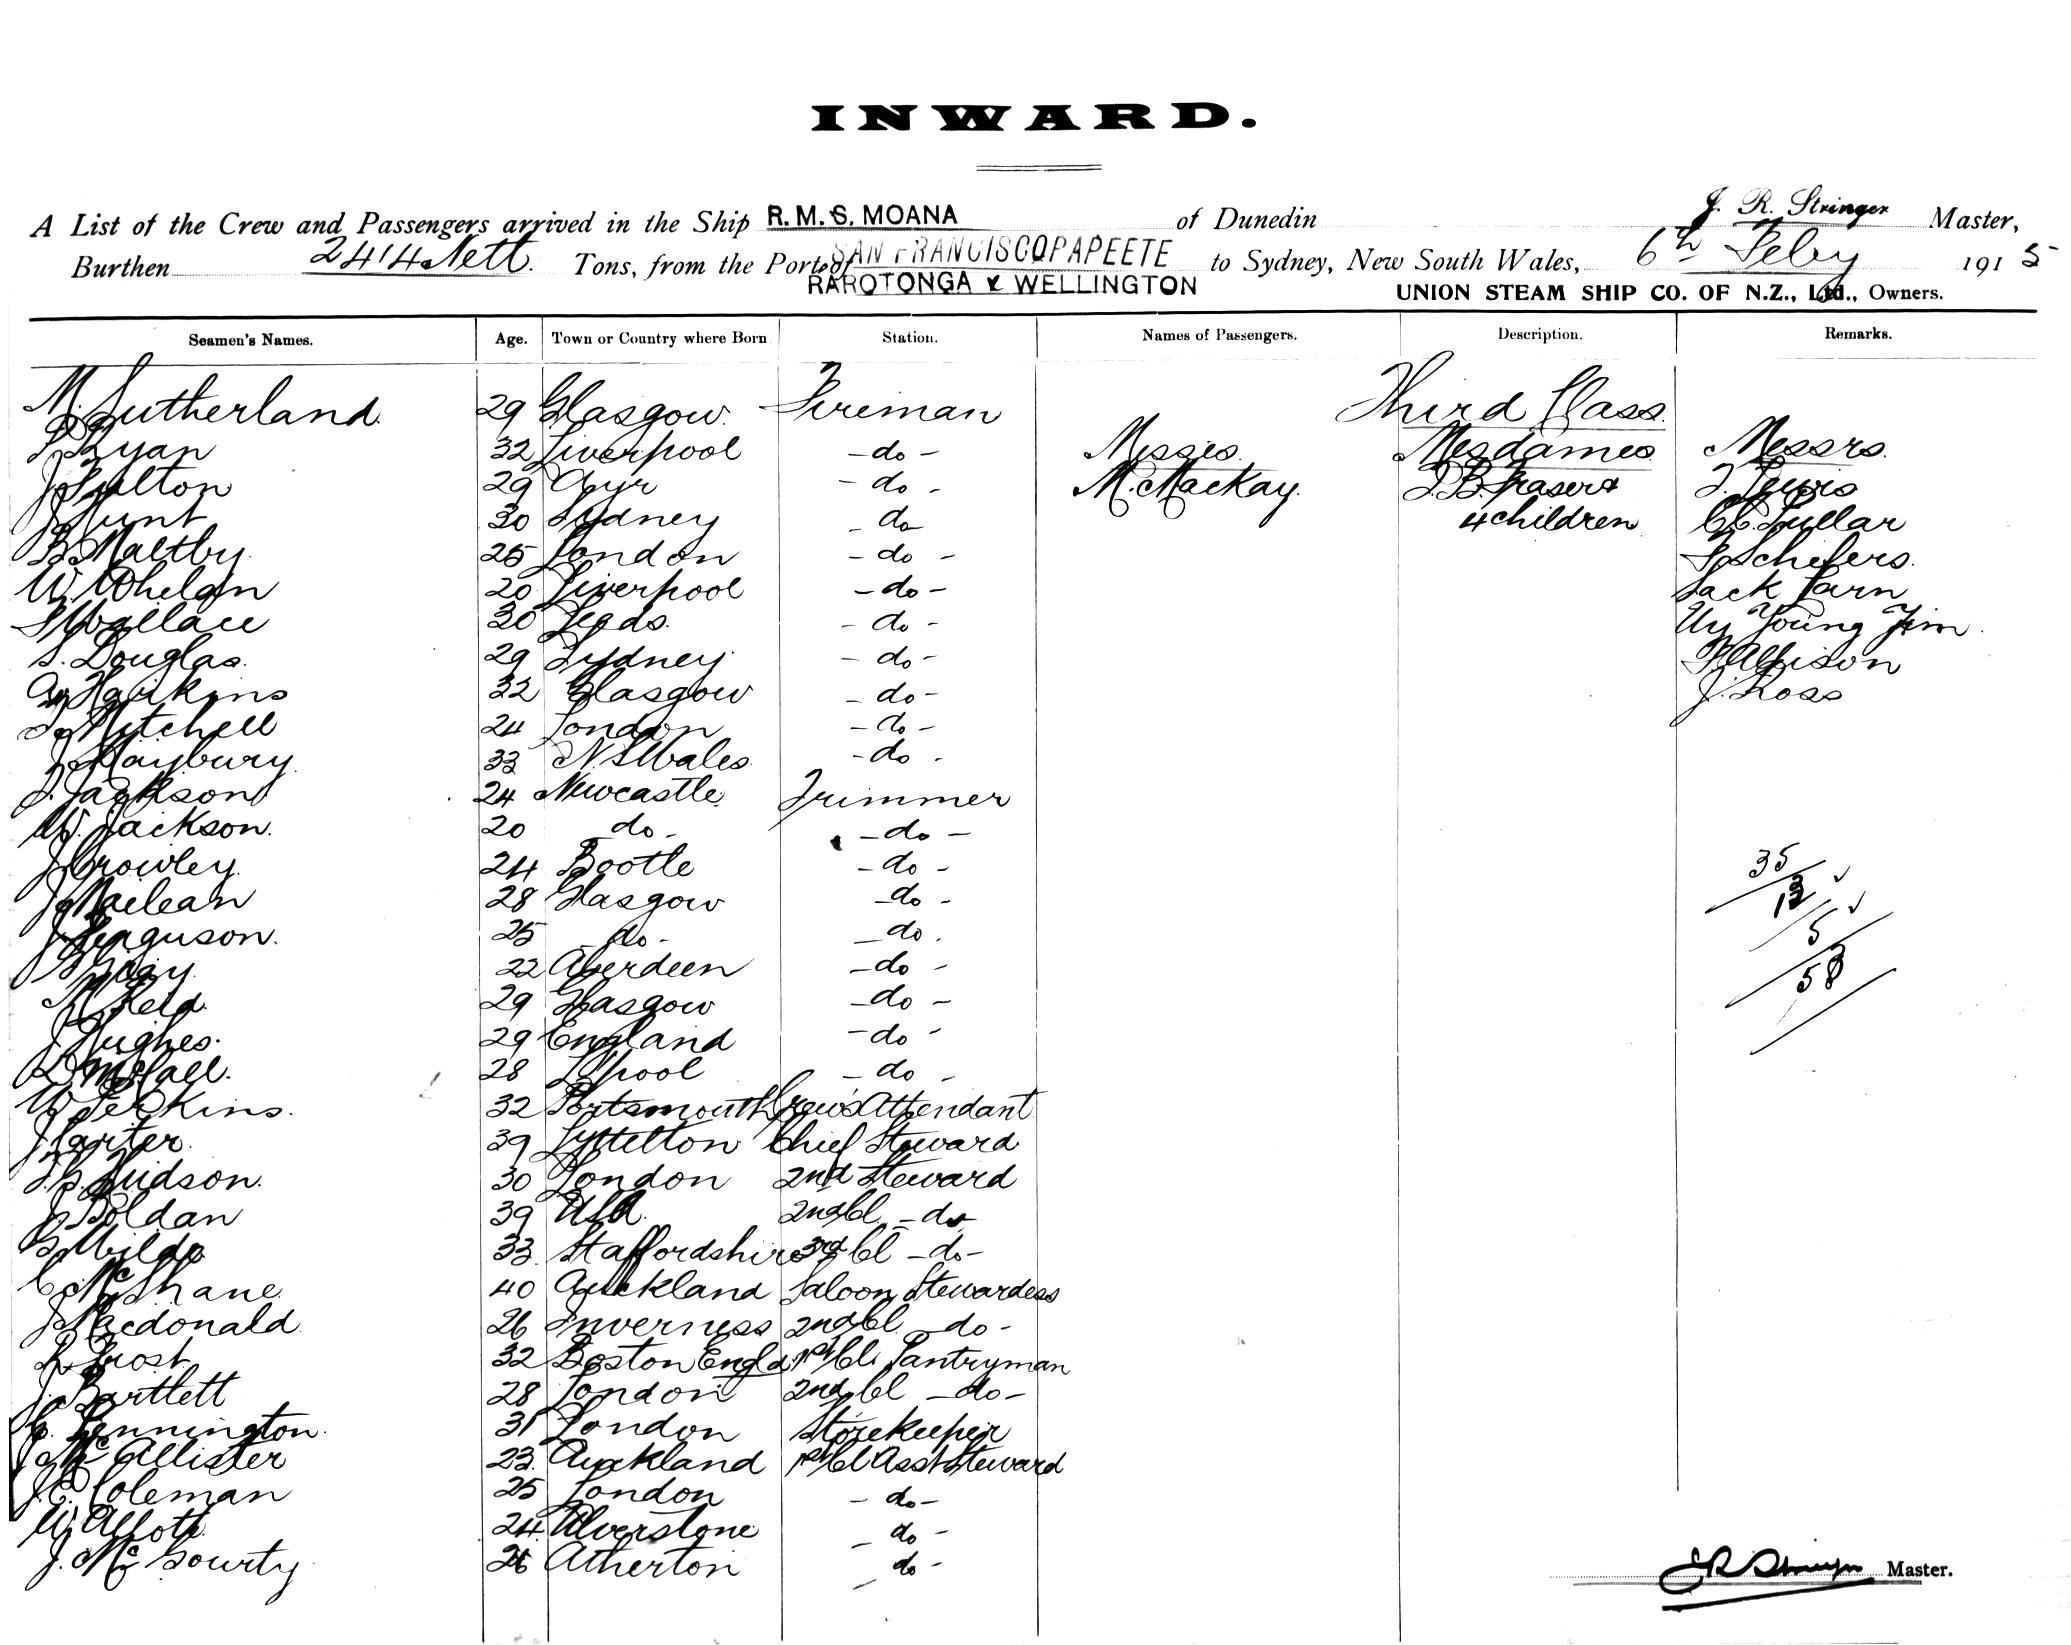 INWARD.
A List of the Crew and Passengers arrived in the Ship R.M.S. MOANA of Dunedin J. R. Stringer Master,
Burthen 2414 Nett. Tons, from the Port of SAN FRANCISCO PAPEETE to Sydney, New South Wales, 6th Feby 1915
RAROTONGA & WELLINGTON UNION STEAM SHIP CO. OF N.Z., Ltd., Owners.
Seamen's Names. Age. Town or Country where Born Station. Names of Passengers. Description. Remarks.
M. Sutherland 29 Glasgow. Fireman Third Class.
Ryan 32 Liverpool -do- Misses. Mesdames Messrs.
J. Fulton 29 Ayr -do- M. MacKay. Fraser & Lewis
J. Hunt 30 Sydney -do- 4 children Fullar
B. Maltby 25 London -do- Schefers.
W. Whelan 20 Liverpool -do- Jack
Wallace 30 Leeds. -do- Uy Young Jim.
S. Douglas. 29 Sydney -do- Allison
Harkins 32 Glasgow -do- J. Ross
Mitchell 24 London -do-
J. Maybury 33 N.S. Wales -do-
J. Jackson 24 Newcastle Trimmer
W. Jackson. 20 do- -do-
J. Crowley. 24 Bootle -do- 35
J. Maclean 28 Glasgow -do- 13
J. Ferguson. 25 -do- -do. 5
22 Aberdeen -do- 53
Reid 29 Glasgow -do-
J. Hughes. 29 England -do-
28 L'pool -do-
W. Perkins. 32 Portsmouth Crew's Attendant
J. Carter. 39 Lyttelton Chief Steward
Judson. 30 London 2nd Steward
J. Boldan 39 USA. 2nd Cl. -do
G. Wilde 33 Staffordshire 3rd Cl -do-
C. McShane 40 Auckland Saloon Stewardess
J. Macdonald 26 Inverness 2nd Cl do-
Frost 32 Boston Engld 1st Cl. Pantryman
J. Bartlett 28 London 2nd Cl -do-
C. Pennington. 31 London Storekeeper
J. McAllister 23. Auckland 1st Cl Asst Steward
J.C. Coleman 25 London -do-
W. Allott 24 Ulverstone do-
J. McGourty 26 Atherton do-
J R Stringer Master.